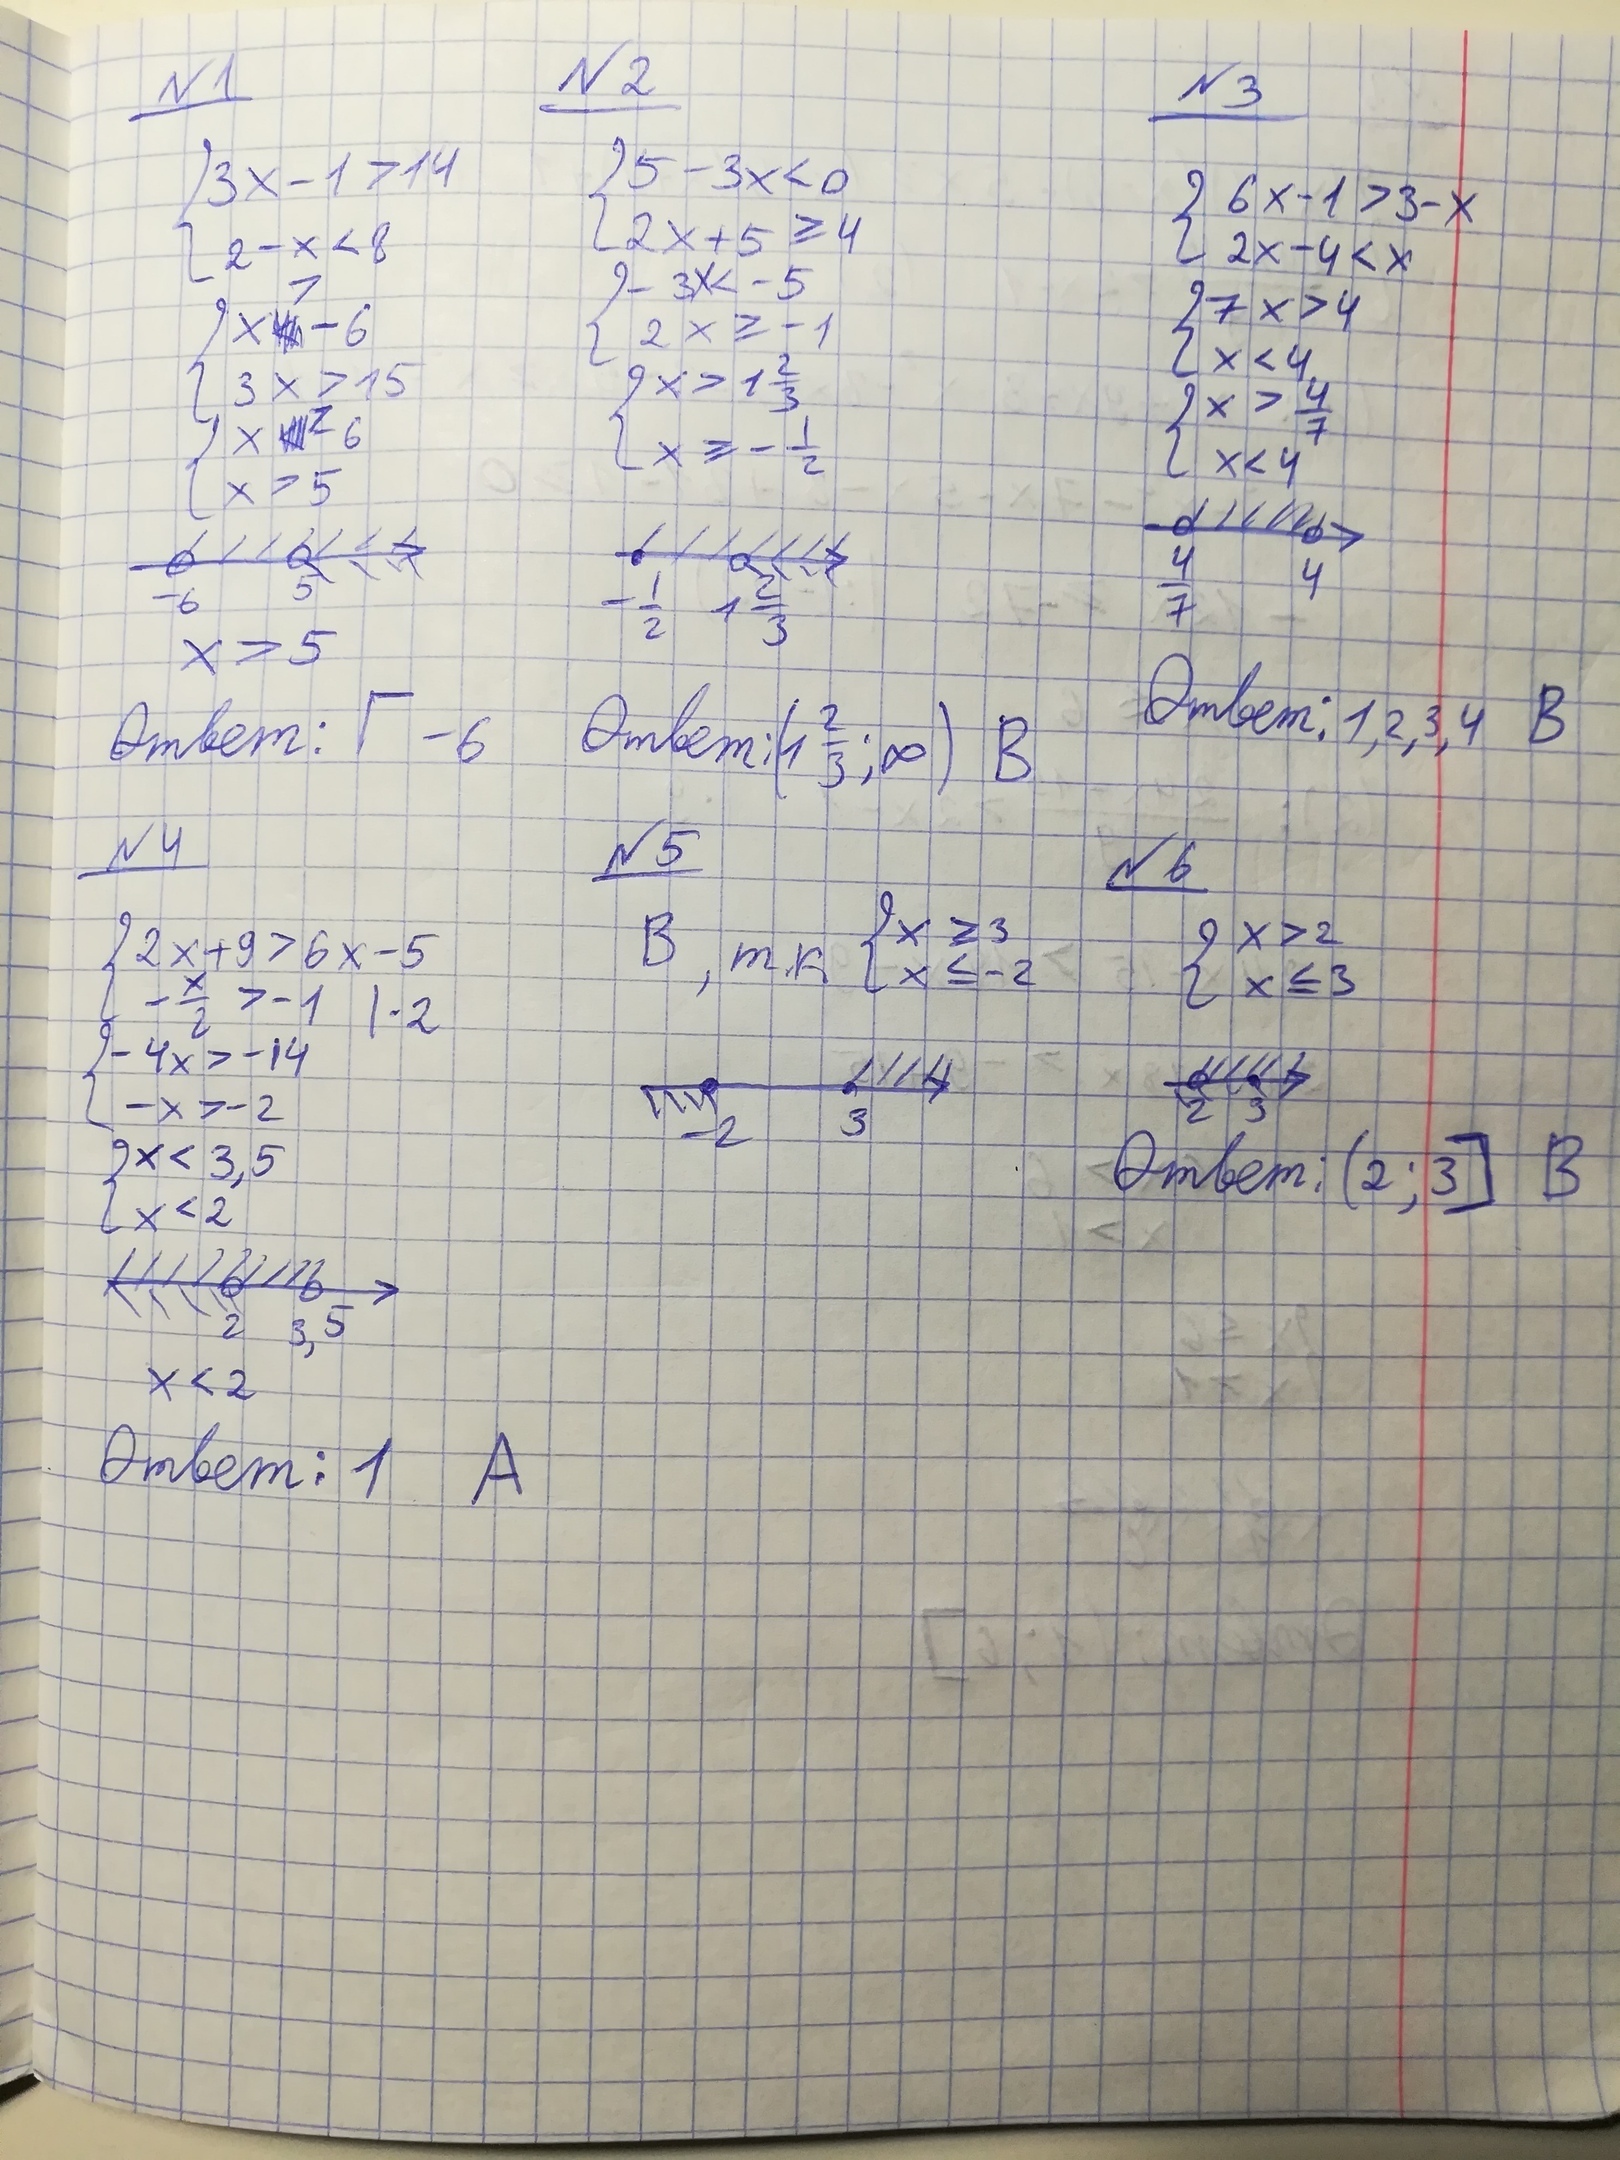 N1
3x-1>14
2-x<8
>
x -6
3x>15
x > -6
x>5
-6 5
x>5
Ответ: Г -6
N2
5-3x<0
2x+5≥4
-3x<-5
2x≥-1
x>1 2/3
x≥-1/2
-1/2 1 2/3
Ответ: (1 2/3; ∞) В
N3
6x-1>3-x
2x-4<x
7x>4
x<4
x>4/7
x<4
4/7 4
Ответ: 1,2,3,4 В
N4
2x+9>6x-5
-x/2>-1 |·2
-4x>-14
-x>-2
x<3,5
x<2
2 3,5
x<2
Ответ: 1 А
N5
В, т.к x≥3
x≤-2
-2 3
N6
x>2
x≤3
2 3
Ответ: (2; 3] В